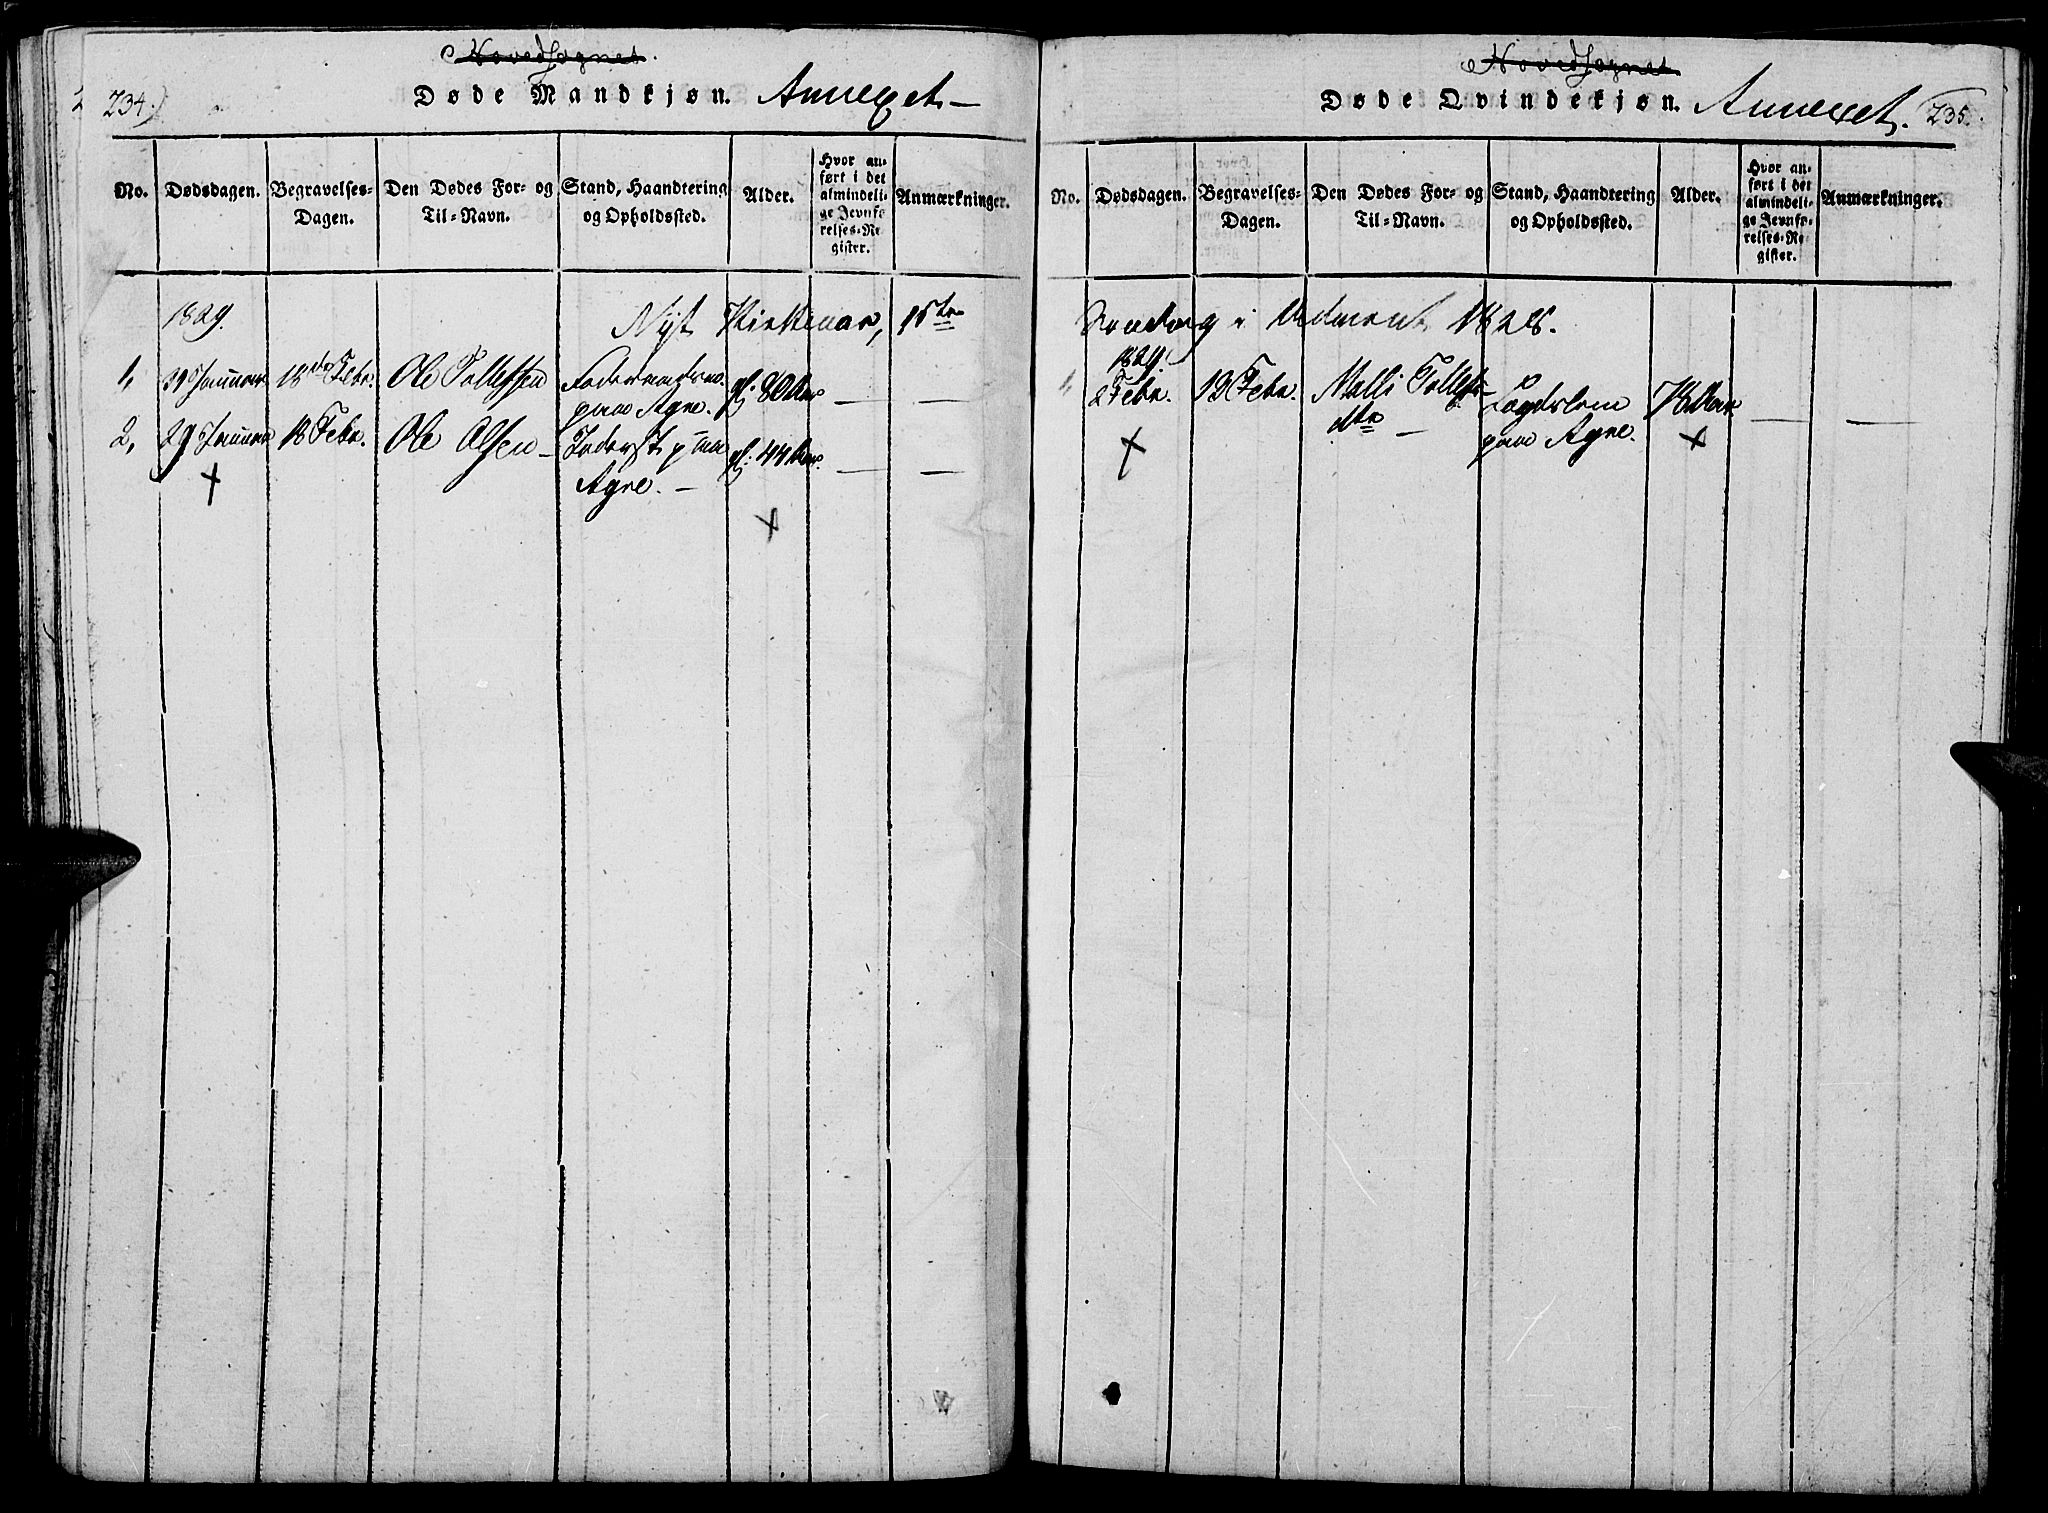 Hovedsognet.
234.)
Døde Mandkjøn. Annexet –
No. Dødsdagen. Begravelses-Dagen. Den Dødes For- og Til-Navn. Stand, Haandtering og Opholdssted. Alder. Hvor anført i det almindelige Jevnførelses-Register. Anmærkninger.
1829. Nyt Kirkeaar, 1ste
1, Januar 18de Febr. Ole Tollefsen paa Agre. gl. 80 Aar — —
2, 29 Januar 18 Febr. Ole Olsen – Inderst paa Agre. – gl: 44 Aar. — —
Hovedsognet
Døde Qvindekjøn. Annexet. 235.
No. Dødsdagen. Begravelses-Dagen. Den Dødes For- og Til-Navn. Stand, Haandtering og Opholdssted. Alder. Hvor anført i det almindelige Jevnførelses-Register. Anmærkninger.
Søndag i Advent 1828.
1829.
1, 2 Febr. 19 Febr. Malli Tollefsdtr – Lægdslem paa Agre. 78 Aar — —